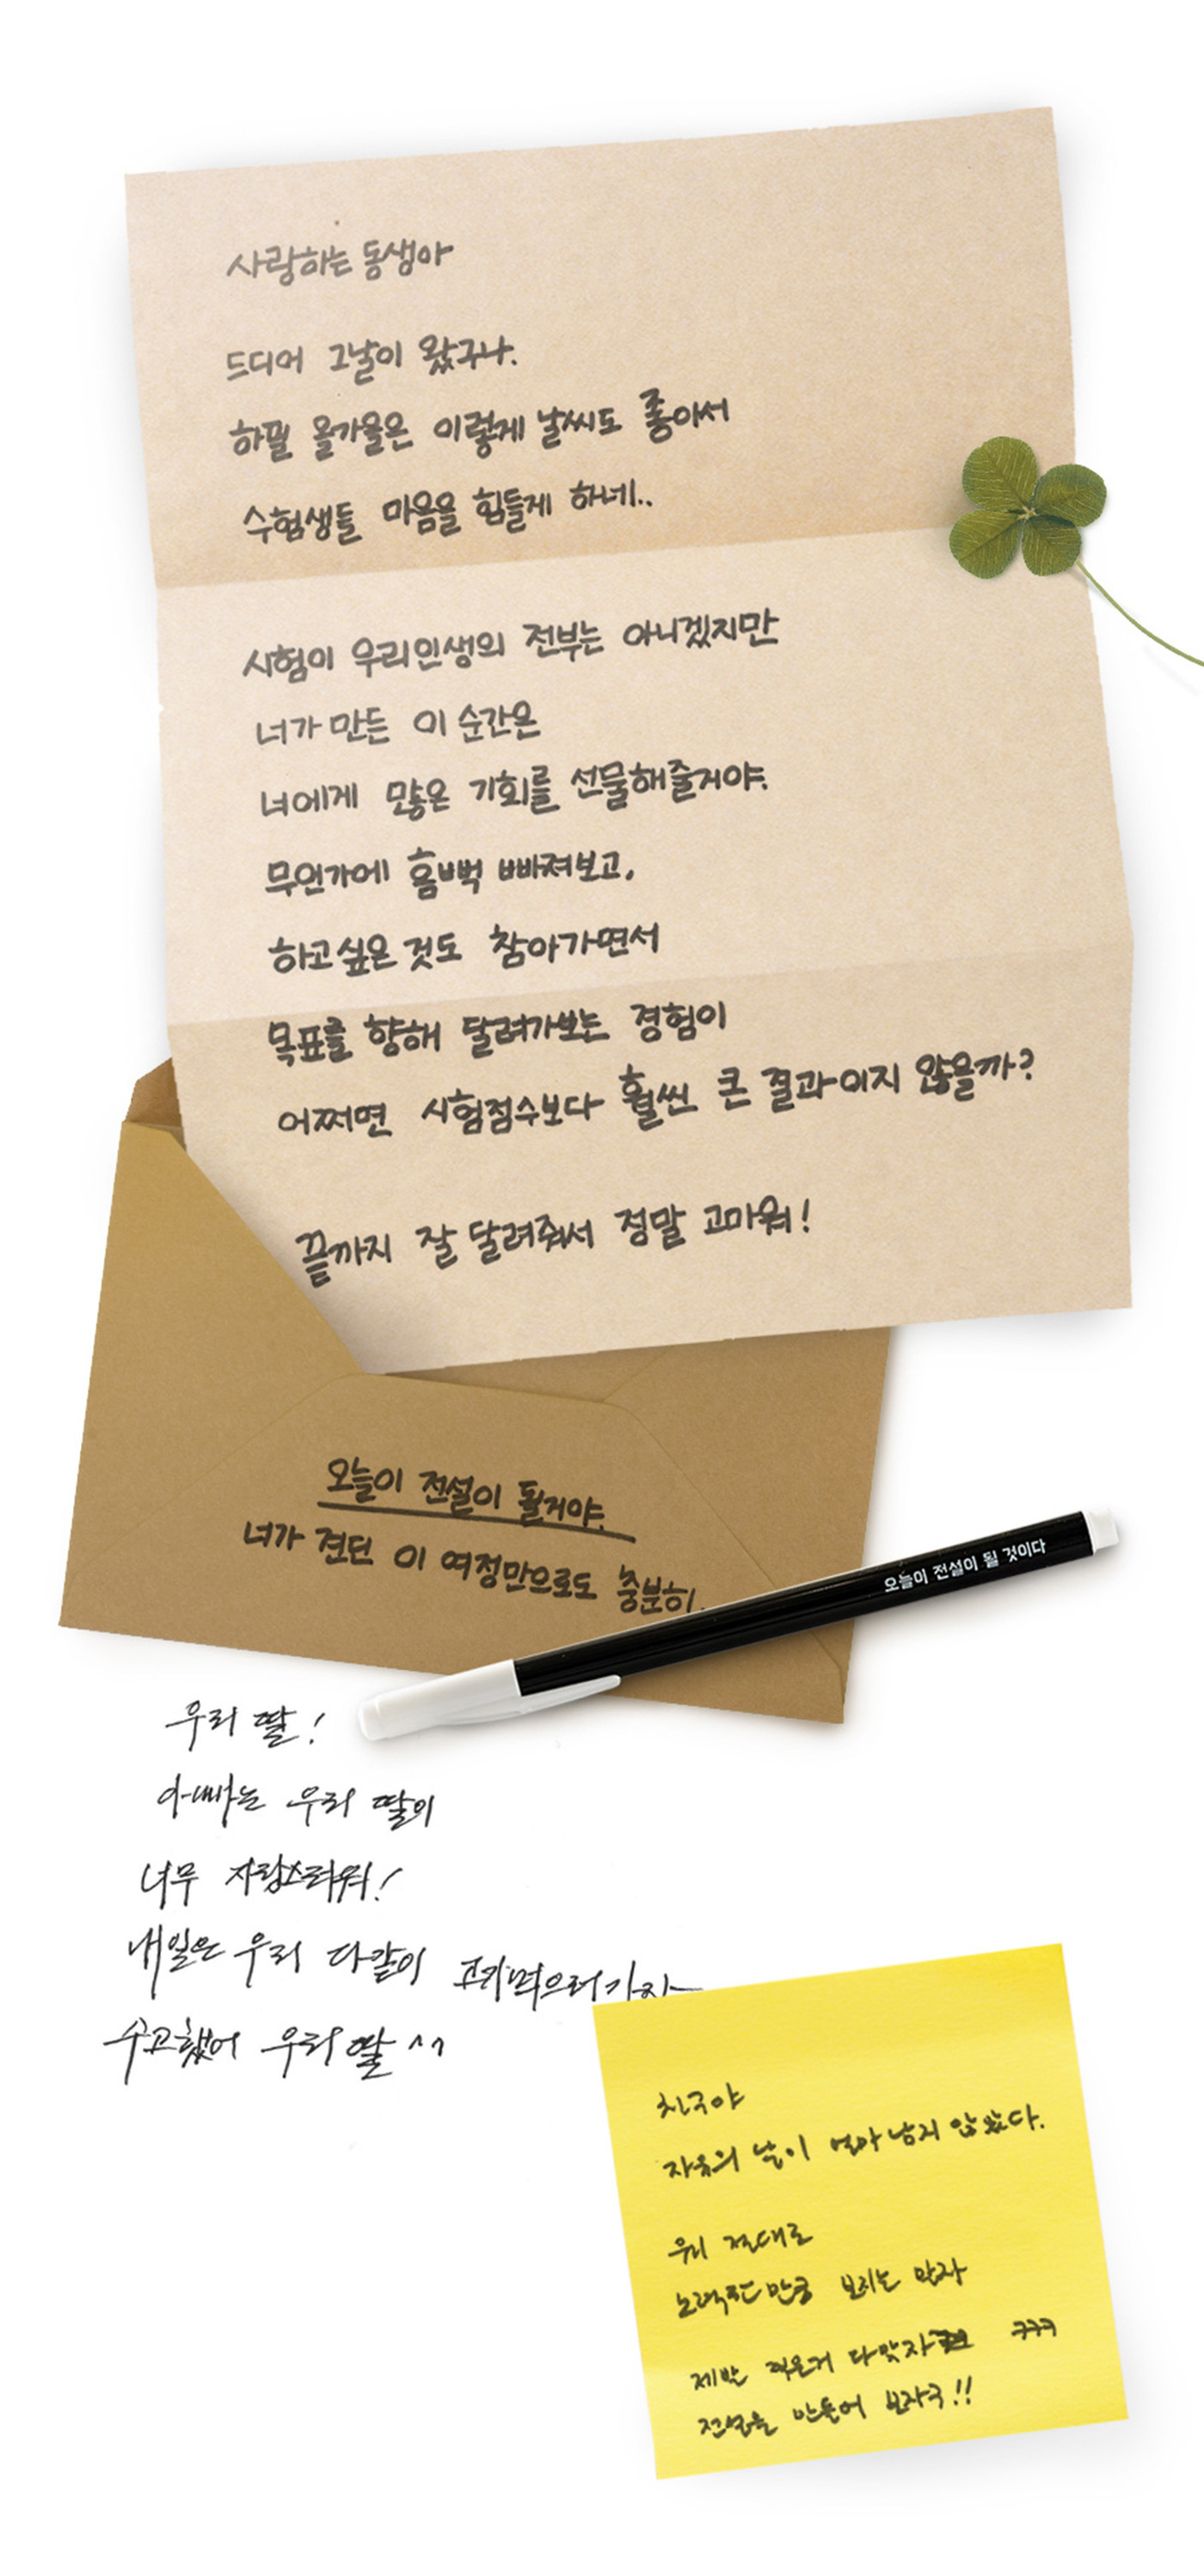 사랑하는 동생아
드디어 그날이 왔구나.
하필 올가을은 이렇게 날씨도 좋아서
수험생들 마음을 힘들게 하네..
시험이 우리인생의 전부는 아니겠지만
너가 만든 이 순간은
너에게 많은 기회를 선물해줄거야.
무언가에 흠뻑 빠져보고,
하고싶은 것도 참아가면서
목표를 향해 달려가보는 경험이
어쩌면 시험점수보다 훨씬 큰 결과이지 않을까?
끝까지 잘 달려줘서 정말 고마워!
오늘이 전설이 될거야.
너가 견딘 이 여정만으로도 충분히.
오늘이 전설이 될 것이다
우리 딸!
아빠는 우리 딸이
너무 자랑스러워!
내일은 우리 다같이 고기먹으러가자~
수고했어 우리딸 ^^
친구야
자유의 날이 얼마 남지 않았다.
우리 절대로
노력한만큼 보리는 말자
제발 찍은거 다맞자 ㅋㅋㅋ
전설을 만들어 보자구!!